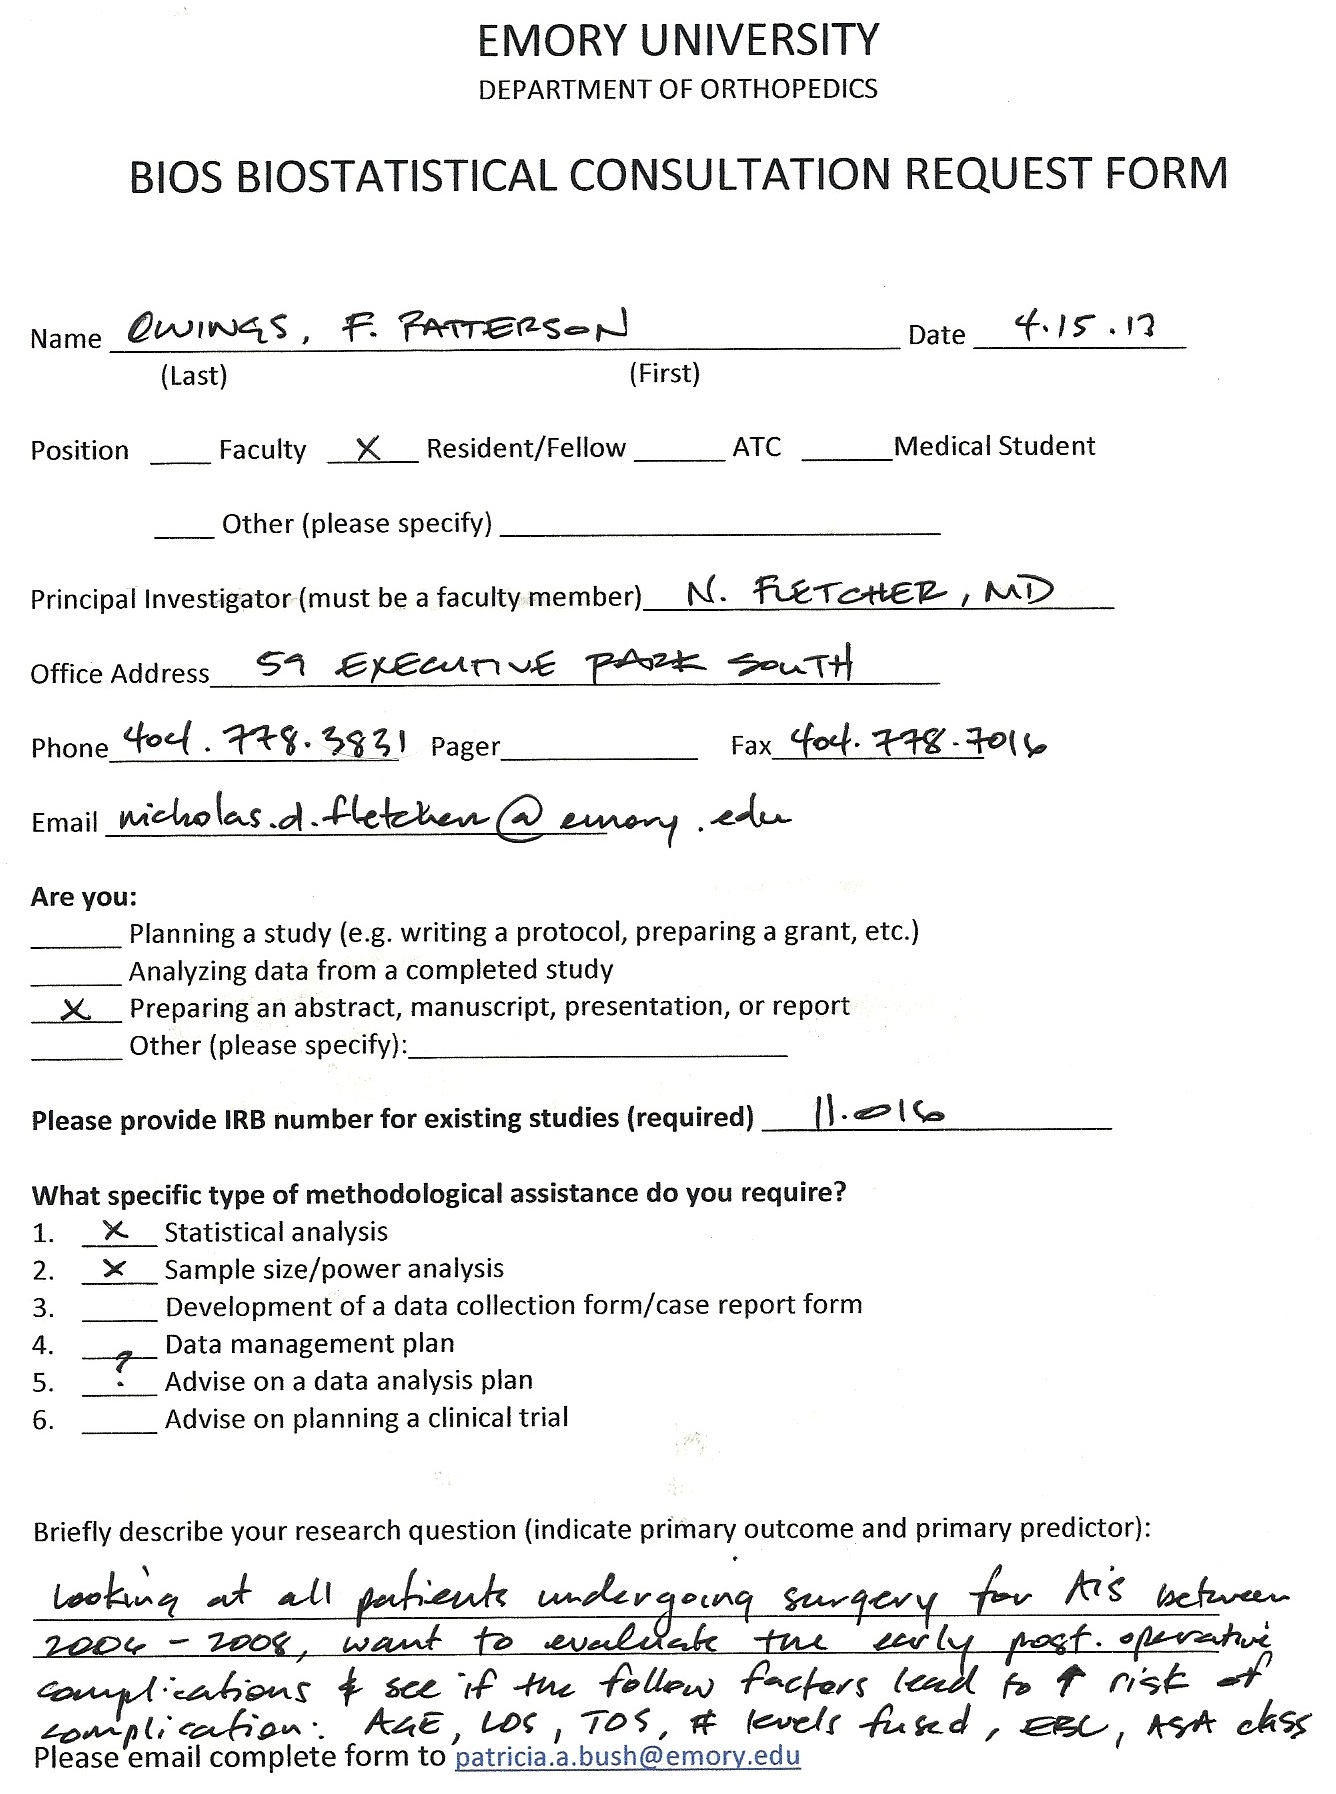 EMORY UNIVERSITY
DEPARTMENT OF ORTHOPEDICS
BIOS BIOSTATISTICAL CONSULTATION REQUEST FORM
Name OWINGS, F. PATTERSON Date 4.15.13
(Last) (First)
Position ____ Faculty X Resident/Fellow ____ ATC ____ Medical Student
____ Other (please specify) ____
Principal Investigator (must be a faculty member) N. FLETCHER, MD
Office Address 59 EXECUTIVE PARK SOUTH
Phone 404.778.3831 Pager ____ Fax 404.778.7016
Email nicholas.d.fletcher@emory.edu
Are you:
____ Planning a study (e.g. writing a protocol, preparing a grant, etc.)
____ Analyzing data from a completed study
X Preparing an abstract, manuscript, presentation, or report
____ Other (please specify): ____
Please provide IRB number for existing studies (required) 11.016
What specific type of methodological assistance do you require?
1. X Statistical analysis
2. X Sample size/power analysis
3. ____ Development of a data collection form/case report form
4. ____ Data management plan
5. ? Advise on a data analysis plan
6. ____ Advise on planning a clinical trial
Briefly describe your research question (indicate primary outcome and primary predictor):
Looking at all patients undergoing surgery for AIS between
2006 - 2008, want to evaluate the early post. operative
complications & see if the follow factors lead to ↑ risk of
complication: AGE, LOS, TOS, # levels fused, EBL, ASA class
Please email complete form to patricia.a.bush@emory.edu